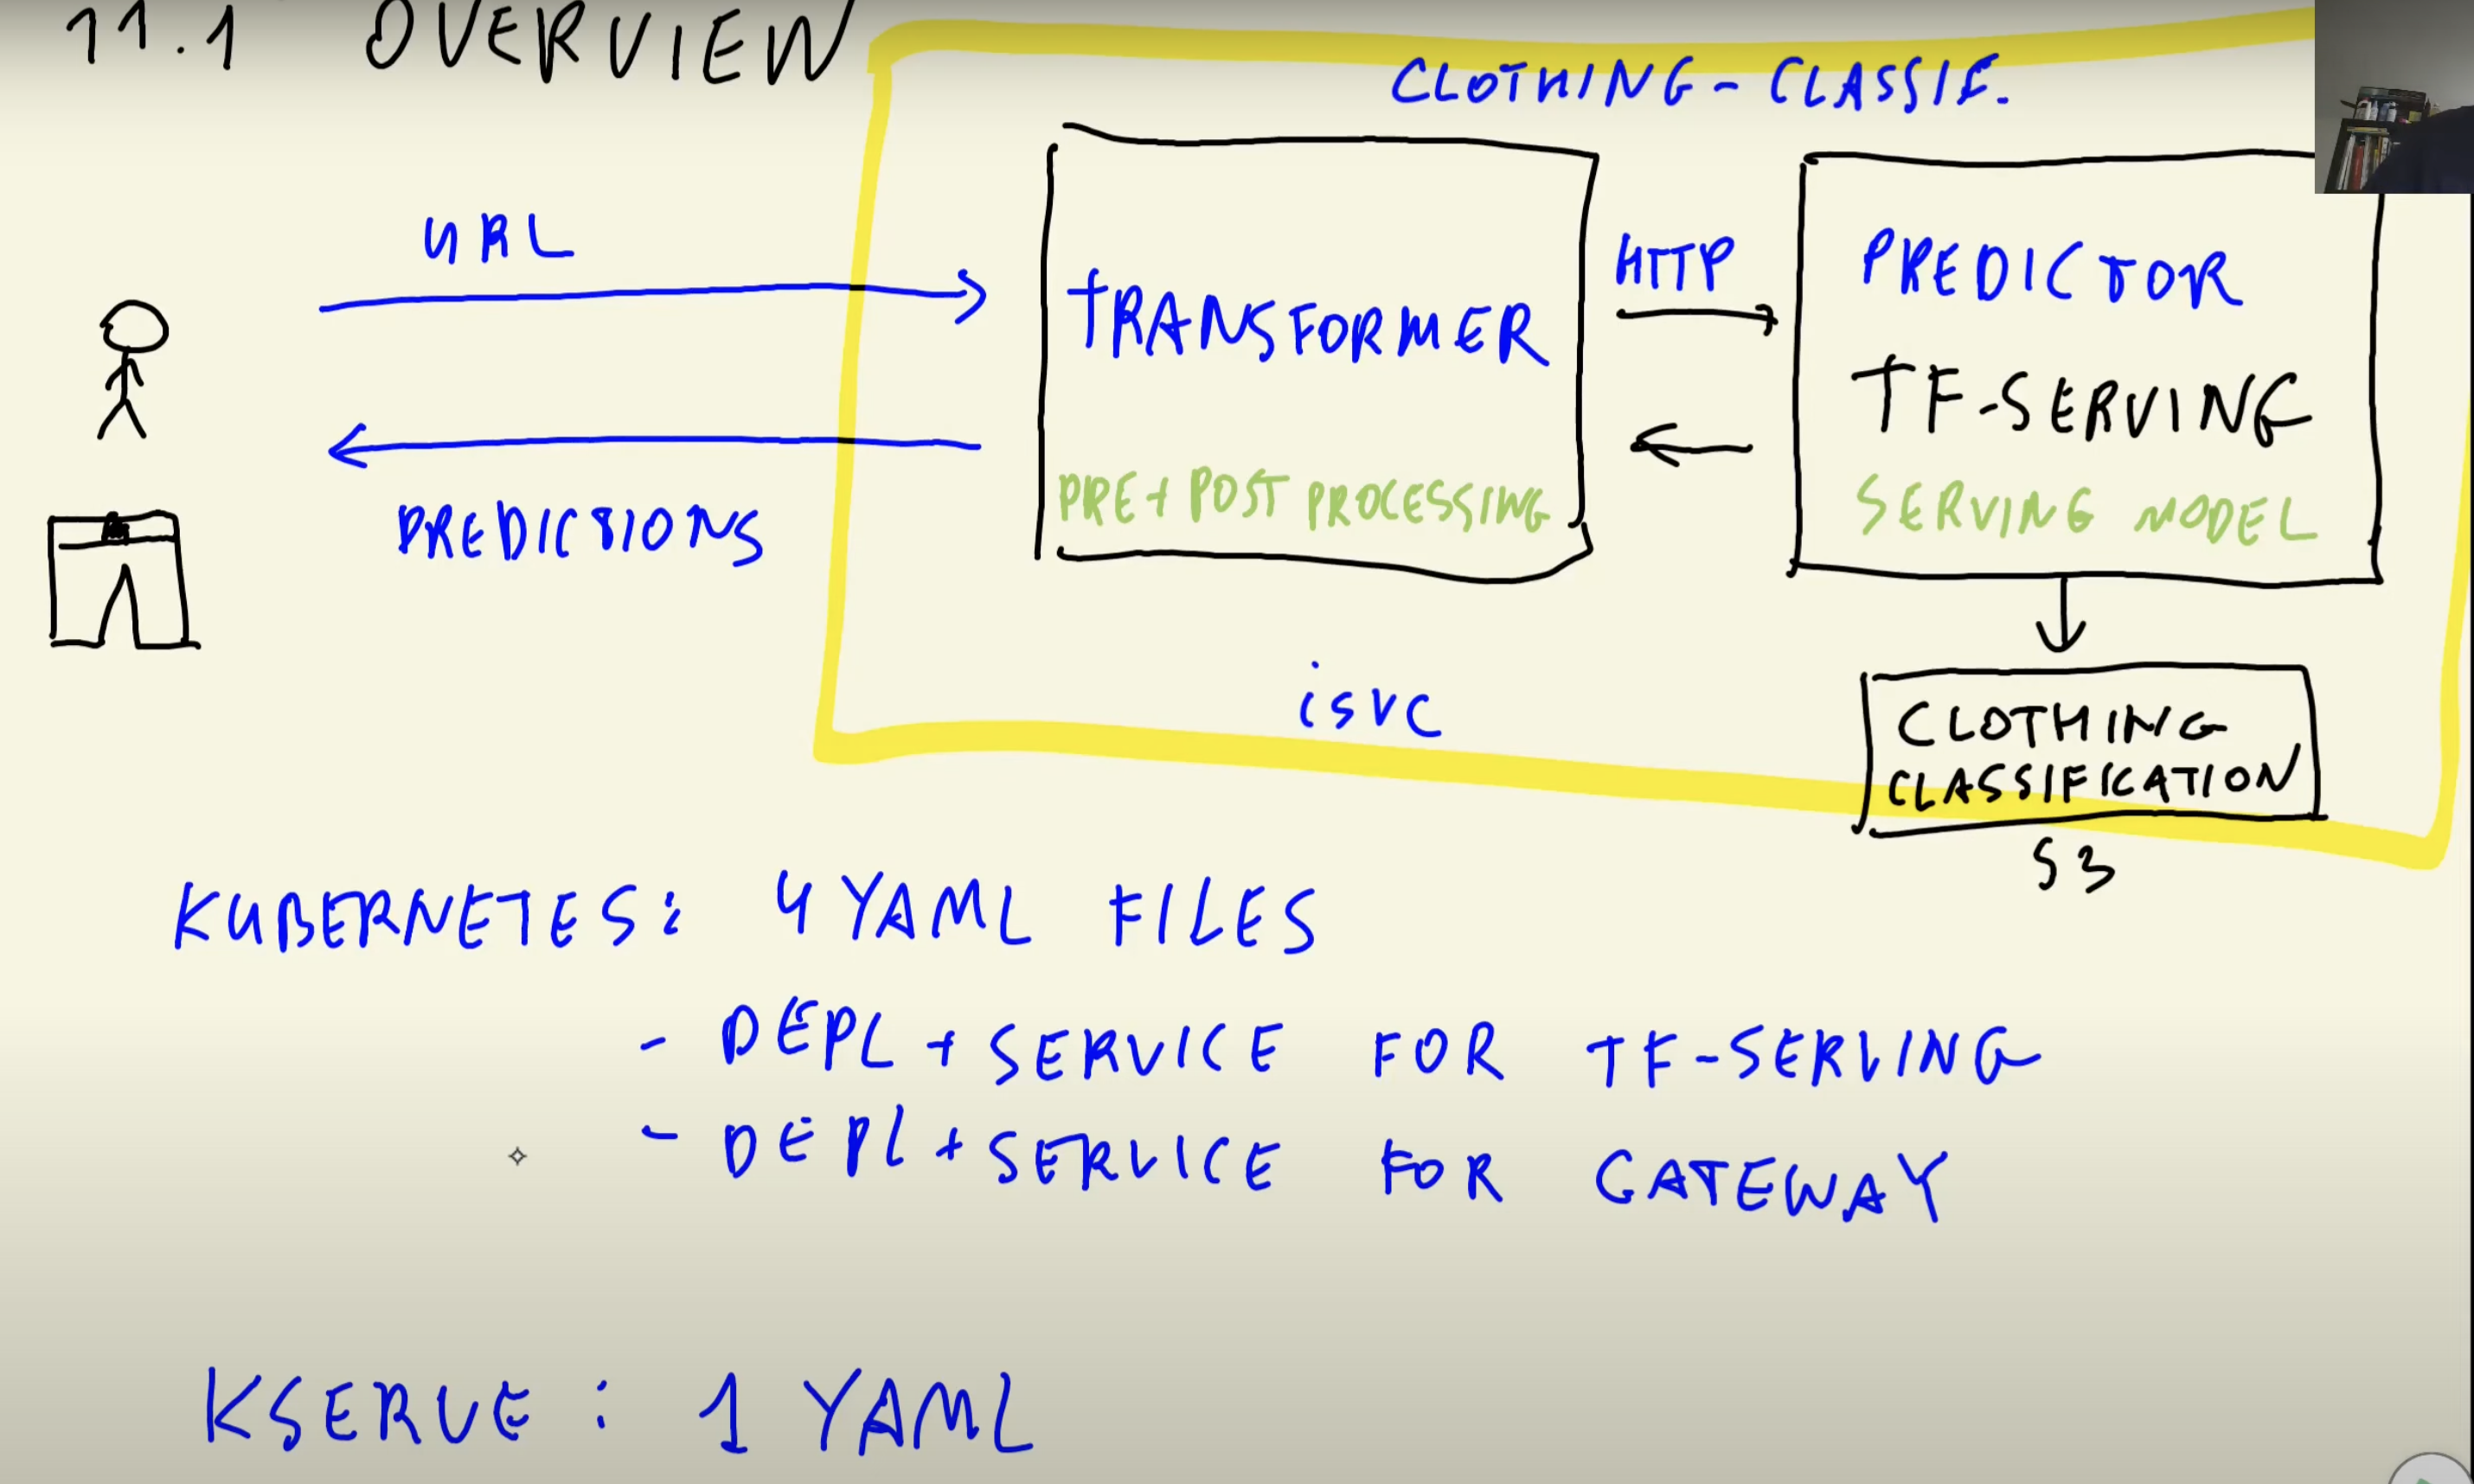 11.1 OVERVIEW
CLOTHING-CLASSIF.
URL
PREDICTIONS
TRANSFORMER
PRE + POST PROCESSING
HTTP
PREDICTOR
TF-SERVING
SERVING MODEL
isvc
CLOTHING
CLASSIFICATION
S3
KUBERNETES: 4 YAML FILES
- DEPL + SERVICE FOR TF-SERVING
- DEPL + SERVICE FOR GATEWAY
KSERVE: 1 YAML